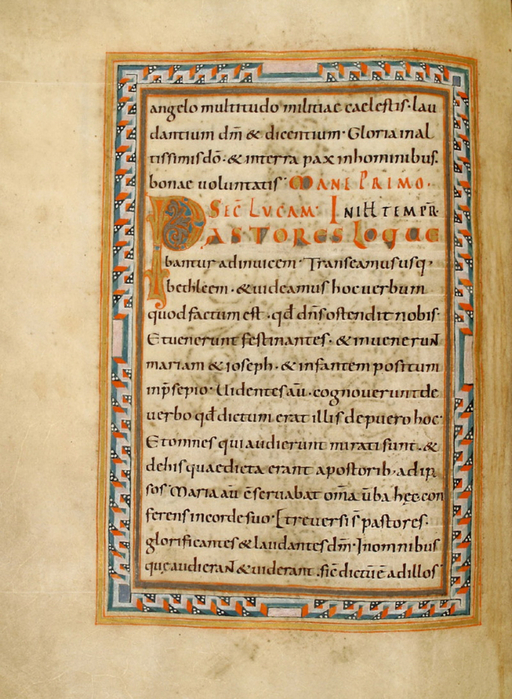 angelo multitudo militiae caelestis· lau
dantium dm̄ & dicentium· Gloria inal
tissimis dō· & interra pax inhominibus.
bonae uoluntatis MANE PRIMO.
SEC̄ LUCAM· IN ILL TEMPR̄
PASTORES LOQUE
bantur adinuicem· Transeamus usq·
bethleem· & uideamus hoc uerbum
quod factum est· qđ dn̄s ostendit nobis·
Et uenerunt festinantes· & inueneruN
mariam & ioseph· & infantem positum
inp̄sepio· Uidentes aū· cognouerunt de
uerbo qđ dictum erat illis depuero hoc·
Et omnes qui audierunt mirati sunt· &
dehis quae dicta erant apastorib· adip
sos· Maria aū c̄seruabat om̄a ūba hęc con
ferens incorde suo· Et reuersi s̄ pastores·
glorificantes & laudantes dm̄· Inomnibus
quę audieraN & uiderant· sic̄ dictūē adillos